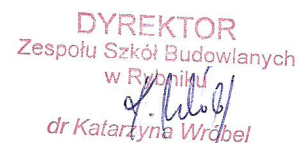 DYREKTOR
Zespołu Szkół Budowlanych
w Rybniku
dr Katarzyna Wróbel